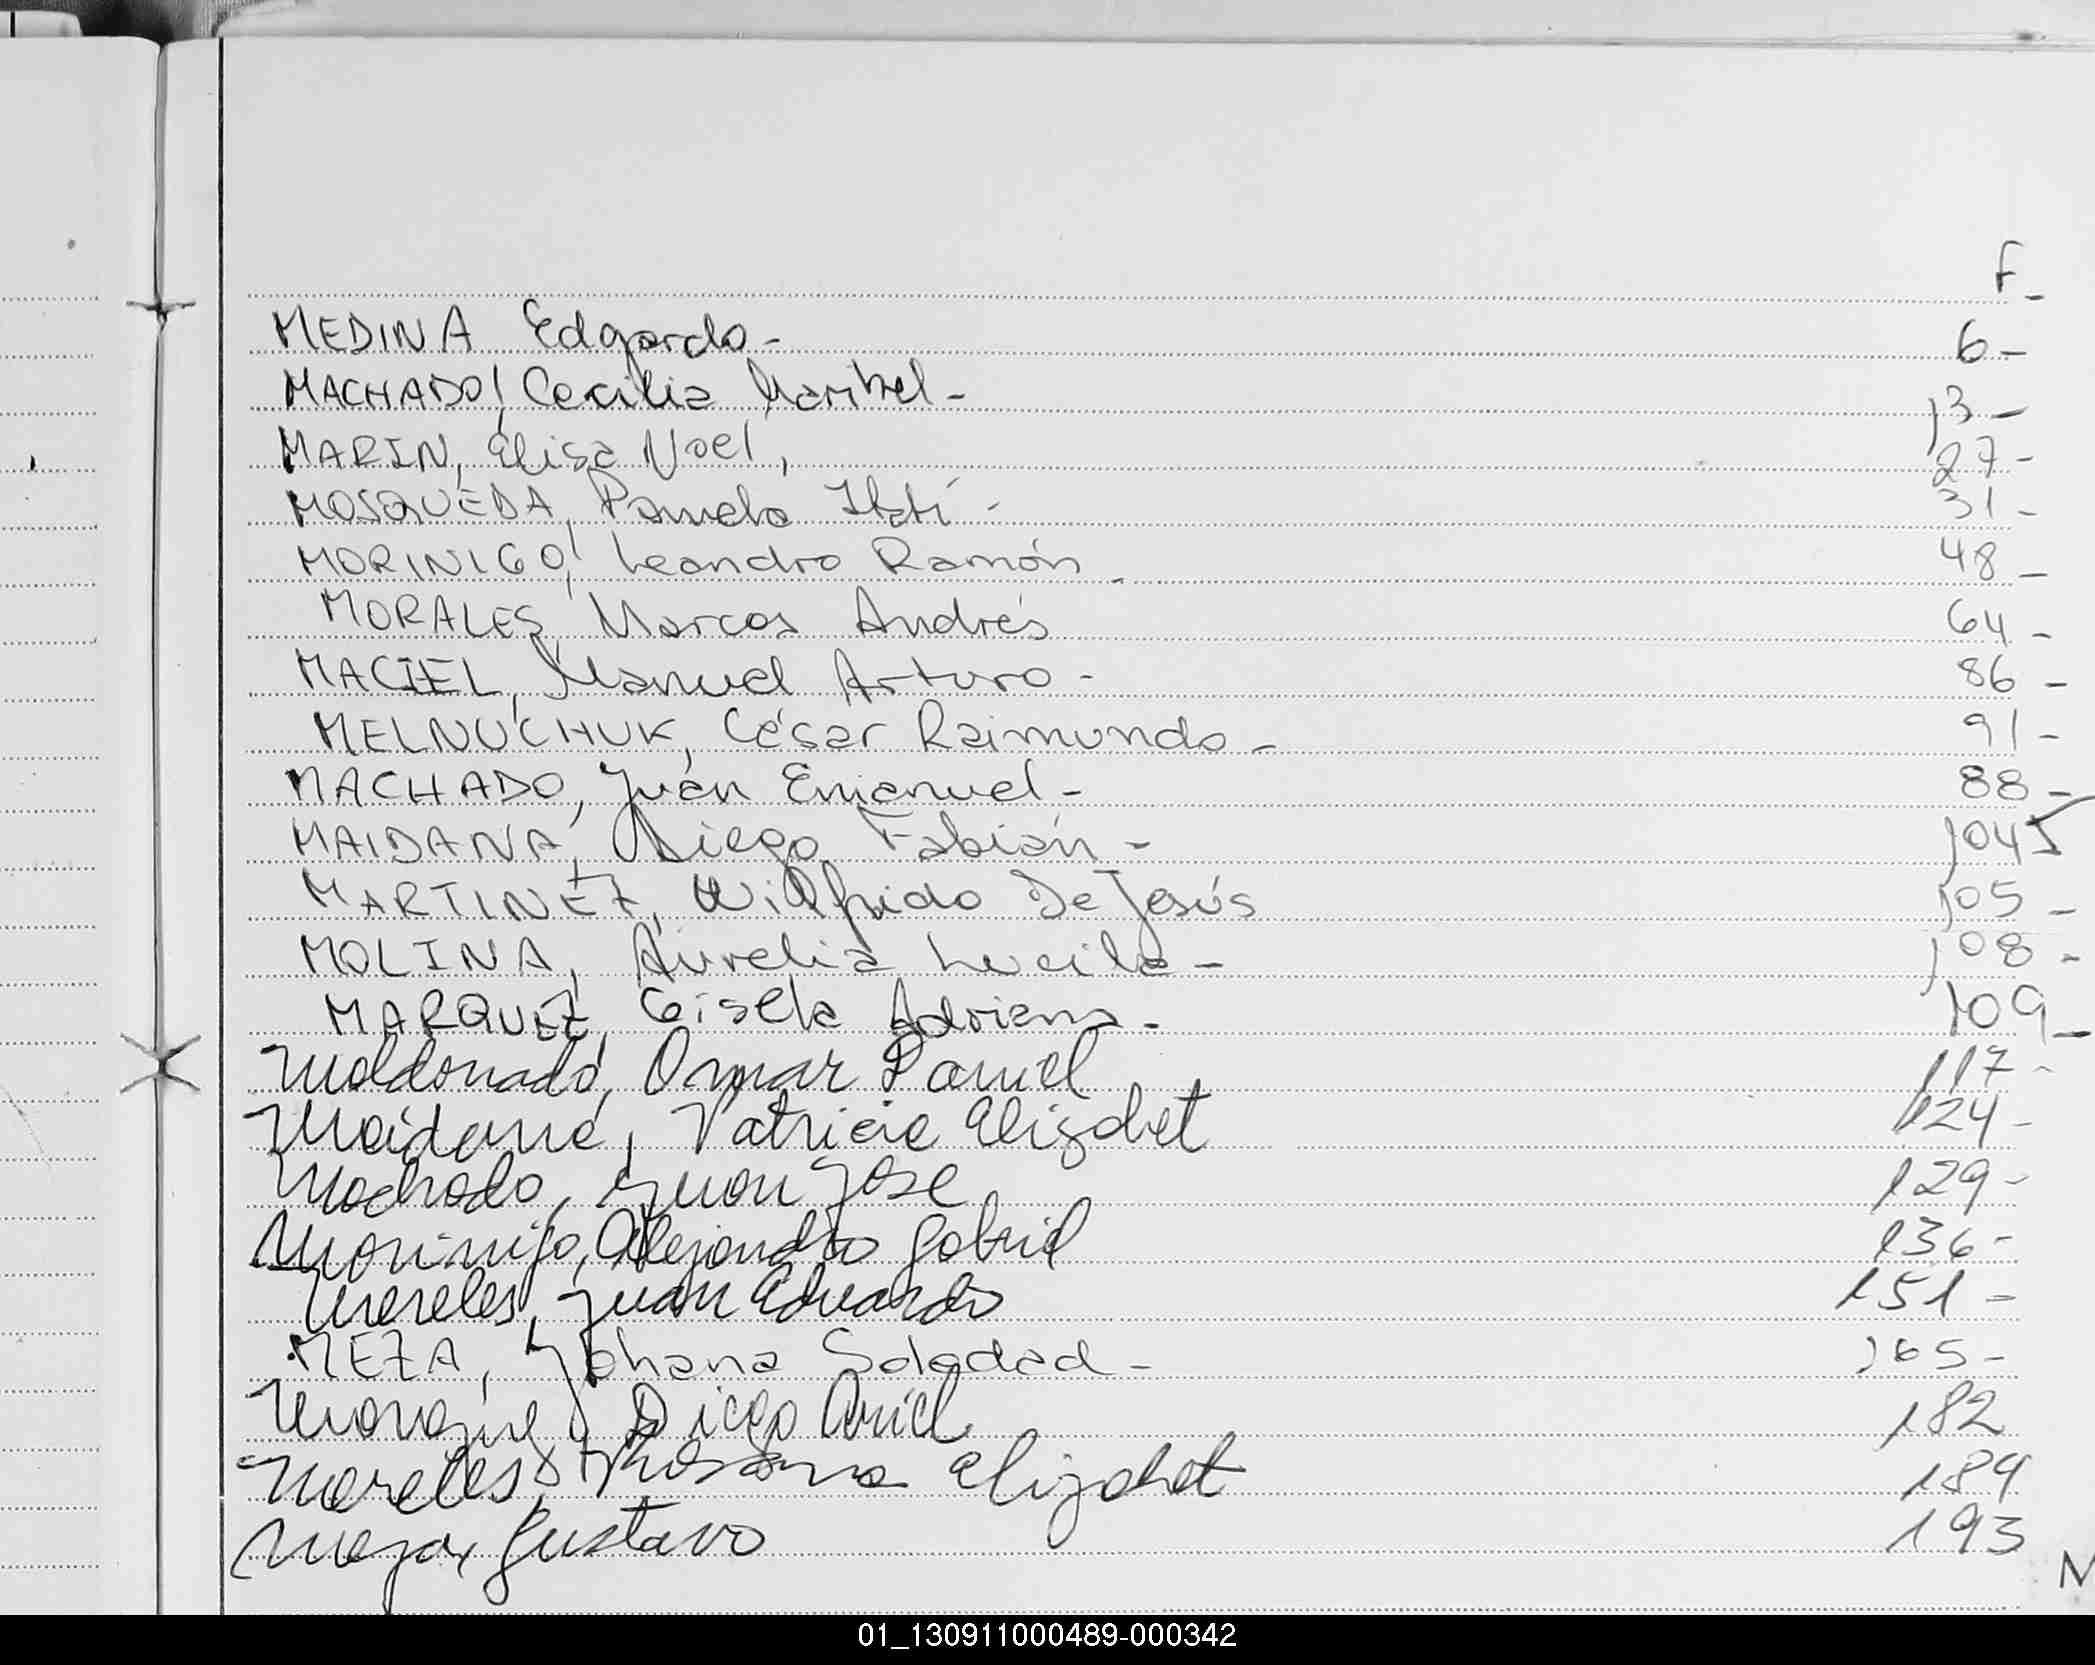 F-
MEDINA Edgardo- 6-
MACHADO, Cecilia Maribel- 13-
MARIN, Elisa Noel, 27-
MOSQUEDA, Pamela Itatí- 31-
MORINIGO, Leandro Ramón- 48-
MORALES, Marcos Andrés 64-
MACIEL, Manuel Arturo- 86-
MELNUCHUK, César Raimundo- 91-
MACHADO, Juan Emanuel- 88-
MAIDANA, Diego Fabián- 104
MARTINEZ, Wilfrido De Jesús 105-
MOLINA, Aurelia Lucila- 108-
MARQUEZ, Gisela Adriana- 109-
Maldonado, Omar Daniel 117-
Maidana, Patricia Elizabet 124-
Machado, Juan Jose 129-
Morinigo, Alejandro Gabriel 136-
Mereles, Juan Eduardo 151-
MEZA, Johana Soledad- 165-
Diego Ariel 182
Mereles, Elizabet 189
Meza, Gustavo 193
M
01_130911000489-000342